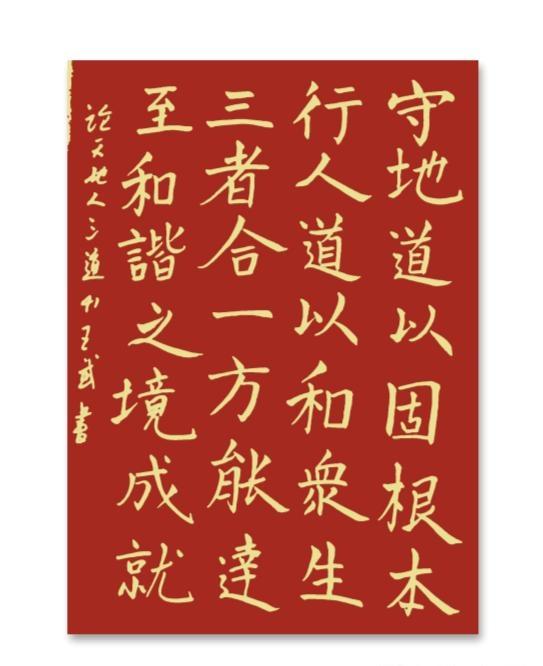 守地道以固根本
行人道以和衆生
三者合一方能達
至和諧之境成就
論天地人三道 王武書